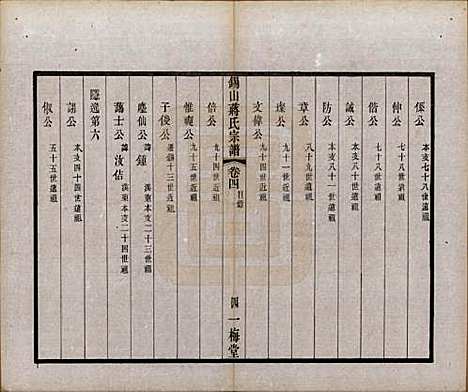 係公 本支七十八世遠祖
仲公 七十八世遠祖
偕公 七十八世遠祖
誠公 七十九世遠祖
防公 本支八十一世遠祖
章公 八十九世遠祖
燦公 九十一世近祖
文偉公 九十四世近祖
錫山蔣氏宗譜 卷四 目錄 四 一梅堂
倍公 九十四世近祖
惟
九十五世近祖
子俊公 十三世近祖
塵仙公 諱鍾 溪東本支二十三世祖
蕩士公 諱汝估 溪東本支二十四世祖
隱逸第六
詡公 本支四十四世遠祖
俶公 五十五世遠祖